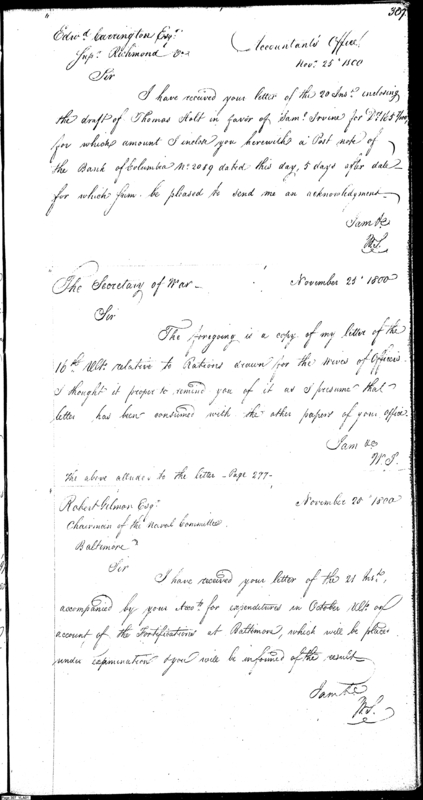 307
Edwd. Carrington Esqr.
Supr. Richmond Va
Accountant's Office
Novr. 25th 1800
Sir
I have received your letter of the 20 Inst. enclosing
the draft of Thomas Holt in favor of Saml. Irvine for
for which amount I inclose you herewith a Post note of
the Bank of Columbia No. 2089 dated this day, 5 days after date
for which sum be pleased to send me an acknowledgment
I am &c
W.S.
The Secretary of War
November 25th 1800
Sir
The foregoing is a copy of my letter of the
16th Ulto. relative to Rations drawn for the wives of Officers
I thought it proper to remind you of it as I presume that
letter has been consumed with the other papers of your office
I am &c
W.S.
The above alludes to the letter Page 277
Robert Gilmor Esqr.
November 1800
Chairman of the Naval Committee
Baltimore
Sir
I have received your letter of the 21 Inst.,
accompanied by your Accots. for expenditures in October Ulto. on
account of the Fortifications at Baltimore, which will be placed
under examination & you will be informed of the result
I am &c
W.S.